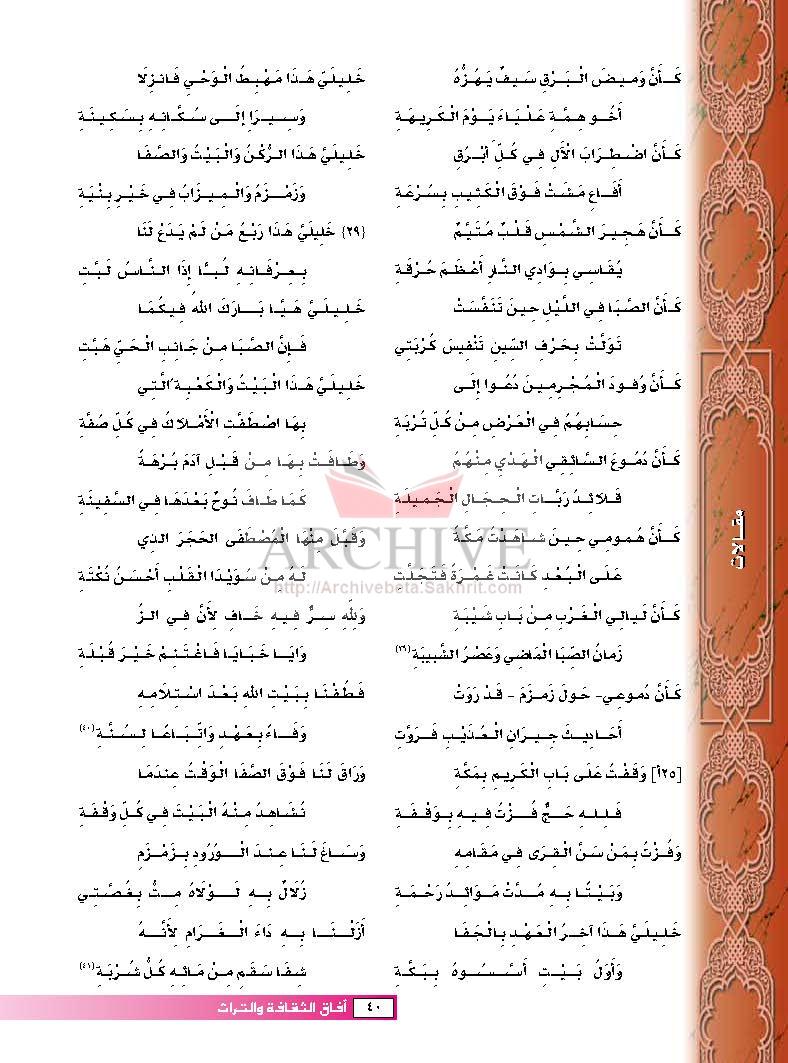 كَــأَنَّ وَمِيضَ الْبَـرْقِ سَيـفٌ يَهُـزُّهُ
أَخُـو هِمَّـةٍ عَـلْيَـاءَ يَـوْمَ الْكَـرِيهَـةِ
كَـأَنَّ اضْـطِـرَابَ الْآلِ فِـي كُـلِّ أَبْـرُقٍ
أَفَـاعٍ مَشَـتْ فَـوْقَ الْكَثِيـبِ بِسُـرْعَةِ
كَــأَنَّ هَجِيـرَ الشَّمْـسِ قَـلْـبُ مُتَيَّـمٍ
يُقَـاسِـي بِـوَادِي النَّـارِ أَعْظَـمَ حُـرْقَةِ
كَــأَنَّ الصَّبَـا فِـي اللَّيْلِ حِينَ تَنَفَّسَتْ
تَوَلَّتْ بِحَرْفِ السِّينِ تَنْفِيسَ كُرْبَتِي
كَــأَنَّ وُفُـودَ الْـمُجْـرِمِيـنَ دُعُـوا إِلَى
حِسَـابِهُمُ فِي الْعَـرْضِ مِـنْ كُـلِّ تُـرْبَةِ
كَـأَنَّ دُمُـوعَ السَّـائِقِي الْهَـدْيِ مِنْهُـمُ
قَـلَائِـدُ رَبَّـاتِ الْـحِجَـالِ الْجَمِيلَـةِ
كَـأَنَّ هُمُومِي حِينَ شَاهَدْتُ مَكَّةَ
عَلَى الْبُعْدِ كَانَتْ غَمْـرَةً فَتَجَلَّتْ
كَـأَنَّ لَيَالِي الْغَرْبِ مِـنْ بَـابِ شَيْبَةِ
زَمَانُ الصِّبَا الْمَاضِي وَعَصْرُ الشَّبِيبَةِ(٣٩)
كَـأَنَّ دُمُوعِي- حَولَ زَمزَمَ - قَـدْ رَوَتْ
أَحَـادِيـثَ جِيـرَانِ الْعُـذَيْبِ فَـرَوَّتِ
[٢٥أ] وَقَفْـتُ عَلَى بَابِ الْكَرِيمِ بِمَكَّةَ
فَـلِـلـهِ حَـجٌّ فُـــزْتُ فِـيـهِ بِـوَقْـفَـةِ
وَفُـزْتُ بِمَـنْ سَـنَّ الْقِـرَى فِـي مَقَامِهِ
وَبَـيْتًـا بِـهِ مُـدَّتْ مَـوَائِـدُ رَحْـمَـةِ
خَلِيلَيَّ هَـذَا آخِـرُ الْعَهْـدِ بِالْجَفَـا
وَأَوَلُ بَـيْتٍ أَسَّـسُــوهُ بِـبَـكَّـةِ
خَلِيلَيَّ هَـذَا مَهْبِطُ الْـوَحْـيِ فَانزِلَا
وَسِـيـرَا إِلَــى سُكَّـانِـهِ بِسَـكِيـنَـةِ
خَلِيلَيَّ هَذَا الرُّكْنُ وَالْبَيْتُ وَالصَّفَا
وَزَمْـزَمُ وَالْـمِيـزَابُ فِـي خَـيْرِ بِنْيَةِ
{٢٩} خَلِيلَيَّ هَذَا رَبْعُ مَنْ لَمْ يَدَعْ لَنَا
بِعِـرْفَانِـهِ لُبـًّا إِذَا الـنَّاسُ لَبَّـتِ
خَلِيلَيَّ هَيَّـا بَــارَكَ اللهُ فِيكُمَـا
فَـإِنَّ الصَّبَـا مِـنْ جَانِبِ الْحَيِّ هَبَّتِ
خَلِيلَيَّ هَـذَا الْبَيْتُ وَالْكَعْبَةُ الَّتِي
بِهَا اصْطَفَّتِ الْأَمْلَاكُ فِي كُلِّ صُفَّةِ
وَطَافَتْ بِهَا مِـنْ قَبْلِ آدَمَ بُرْهَةً
كَمَا طَـافَ نُوحٌ بَعْدَهَا فِي السَّفِينَةِ
وَقَبَّلَ مِنْهَا الْمُصْطَفَى الحَجَرَ الذي
لَهُ مِنْ سُوَيْدَا القَلْبِ أَحْسَنُ نُكْتَةِ
وَلِلّهِ سِـرٌّ فِيـهِ خَـافٍ لِأَنَّ فِي الـزْ
زَوَايَـا خَبَايَا فَاغْتَنِمْ خَيْرَ قُبْلَةِ
فَطُفْنَا بِبَيْتِ اللهِ بَعْدَ اسْتِلَامِهِ
وَفَــاءً بِعَهْـدٍ وَاتِّبَـاعًـا لِسُنَّـةِ(٤٠)
وَرَاقَ لَنَا فَـوْقَ الصَّفَا الْوَقْتُ عِندَمَا
نُشَاهِدُ مِنْـهُ الْبَيْتَ فِي كُـلِّ وَقْفَةِ
وَسَـاغَ لَنَـا عِنـدَ الْـوُرُودِ بِزَمْزَمِ
زُلَالٌ بِـهِ لَـوْلَاهُ مِـتُّ بِغُصَّتِـي
أَزَلْـنَـا بِـهِ دَاءَ الْـغَـرَامِ لِأَنَّـهُ
شِفَا سَقَمٍ مِنْ مَائِهِ كُلُّ شَرْبَةِ(٤١)
مقالات
ARCHIVE
http://Archivebeta.Sakhrit.com
٤٠ آفاق الثقافة والتراث